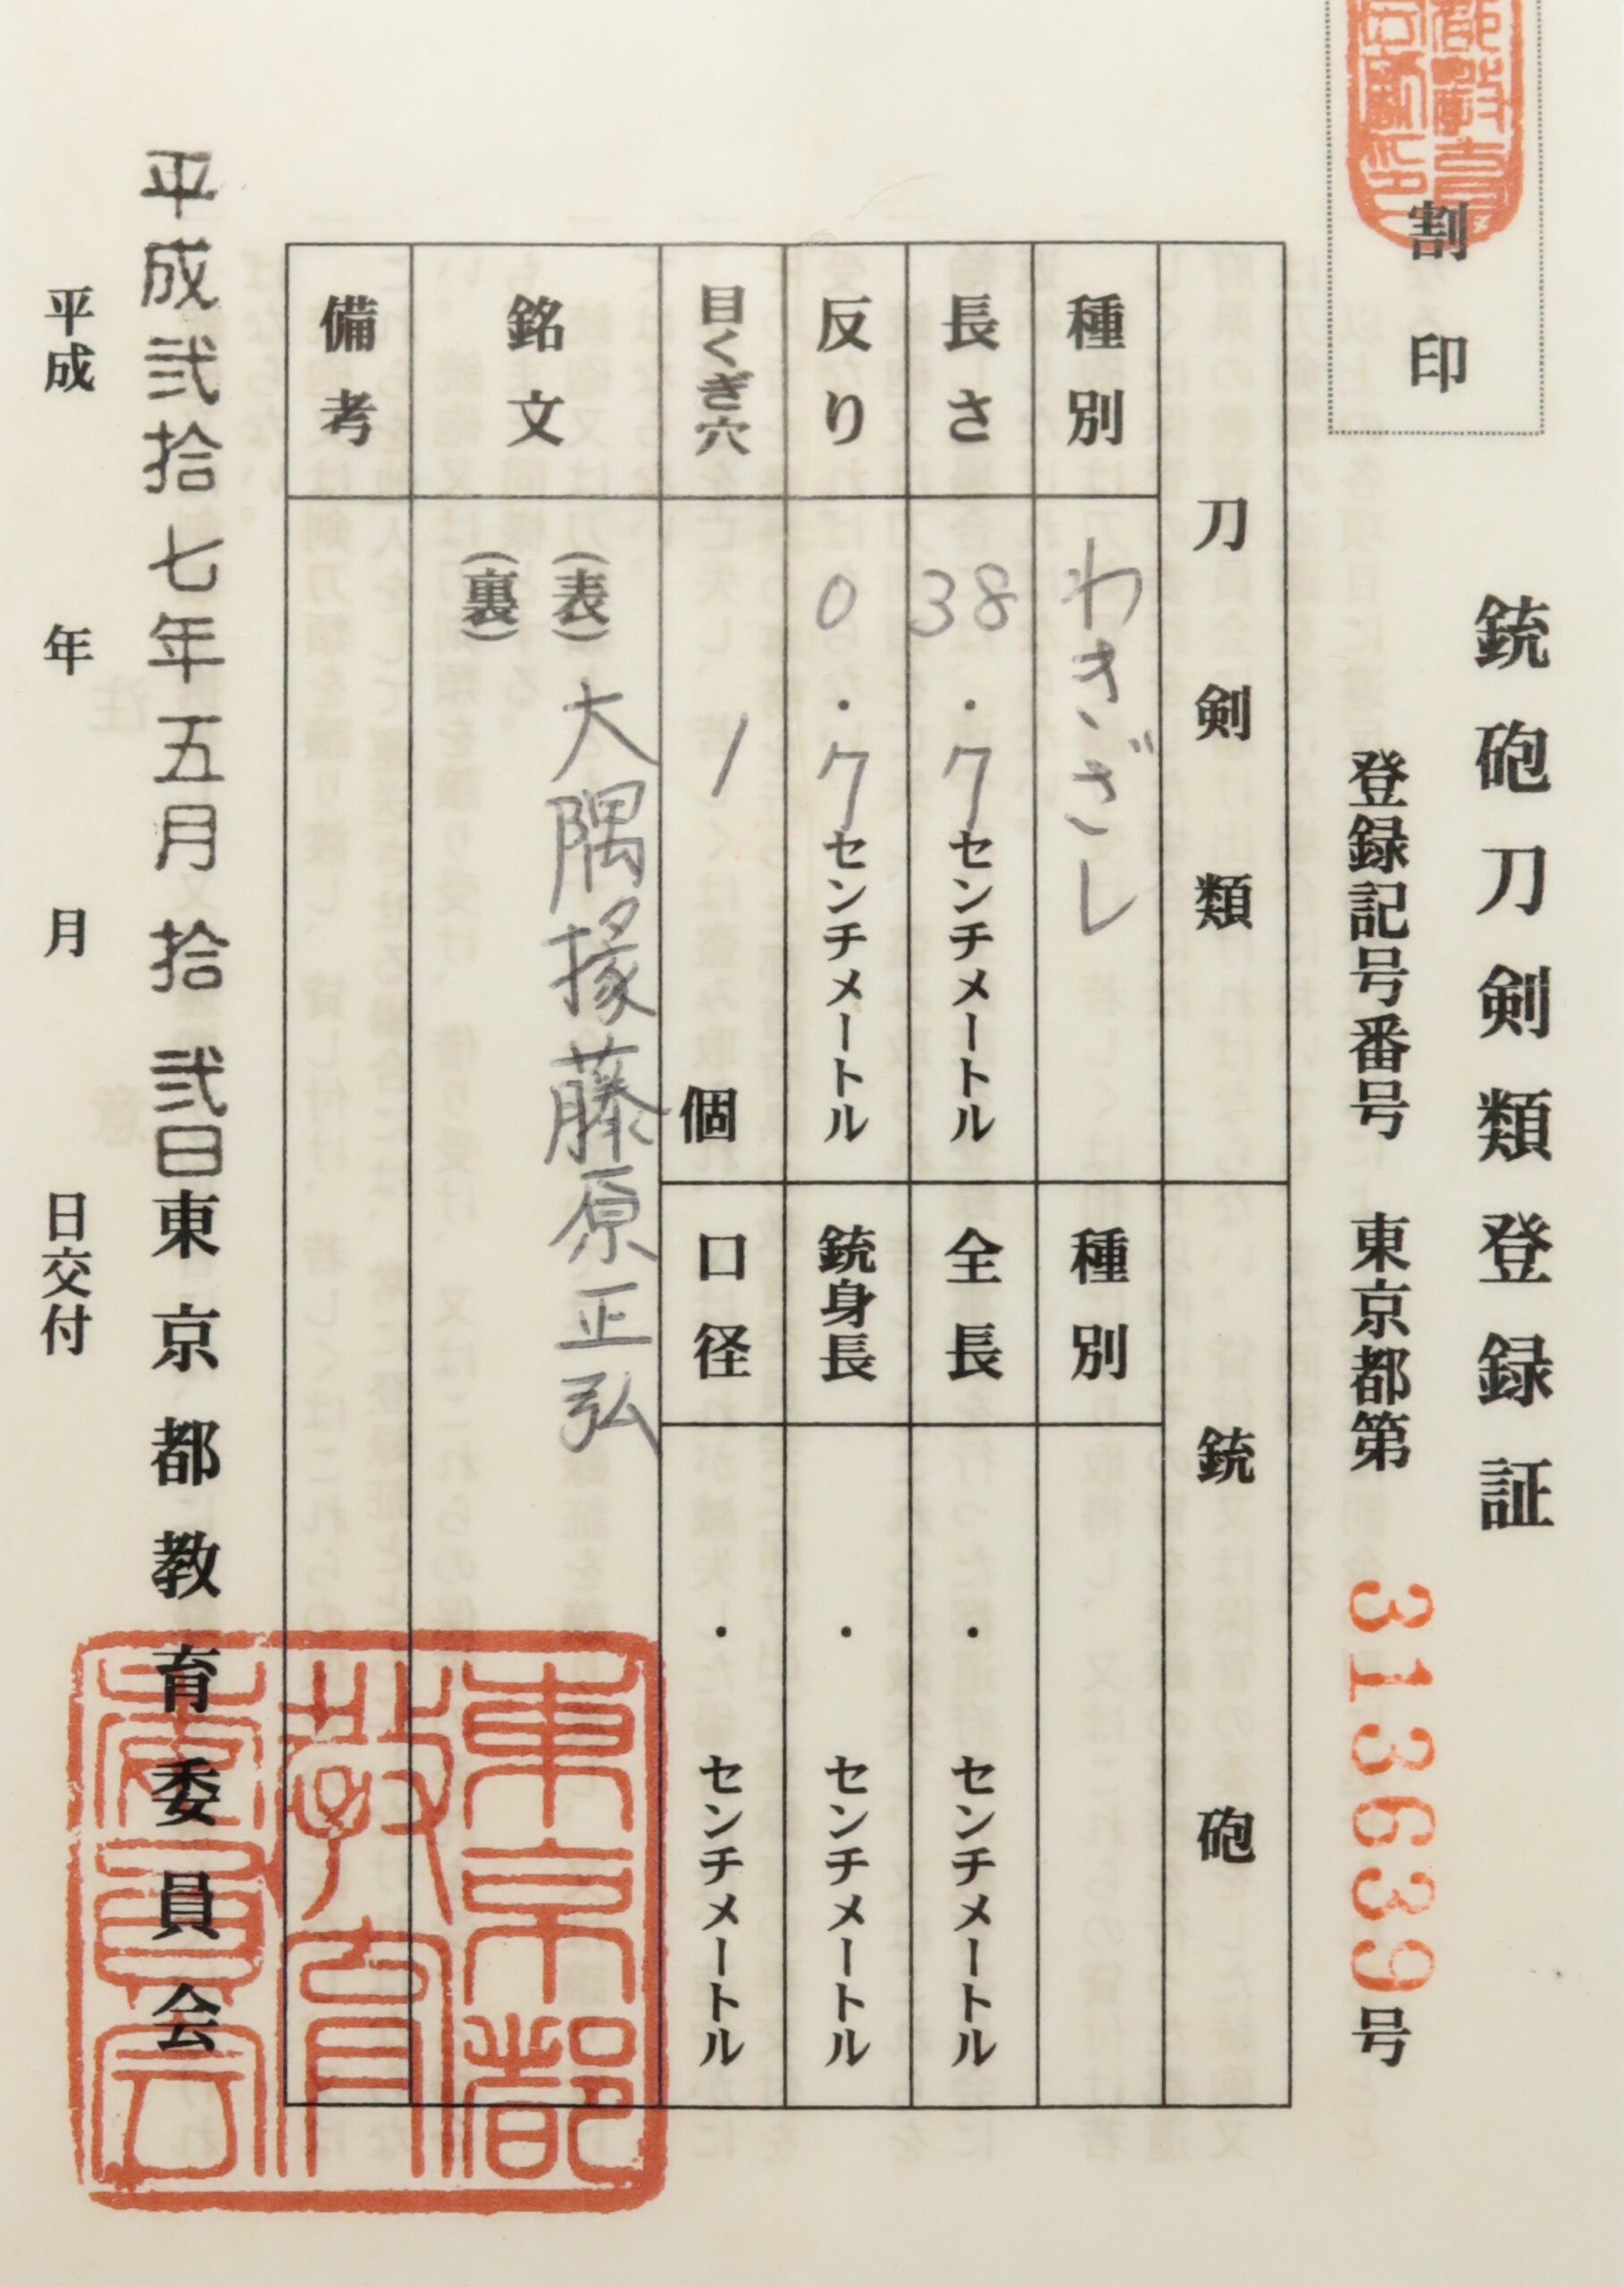 銃砲刀剣類登録証
割印
登録記号番号 東京都第 313639号
刀剣類
銃砲
種別 わきざし
種別
長さ 38.7センチメートル
全長 ・ センチメートル
反り 0.7センチメートル
銃身長 ・ センチメートル
目くぎ穴 1 個
口径 ・ センチメートル
銘文
(表) 大隅掾藤原正弘
(裏)
備考
平成弐拾七年五月拾弐日 東京都教育委員会
平成 年 月 日交付
東京都
教育
委員会